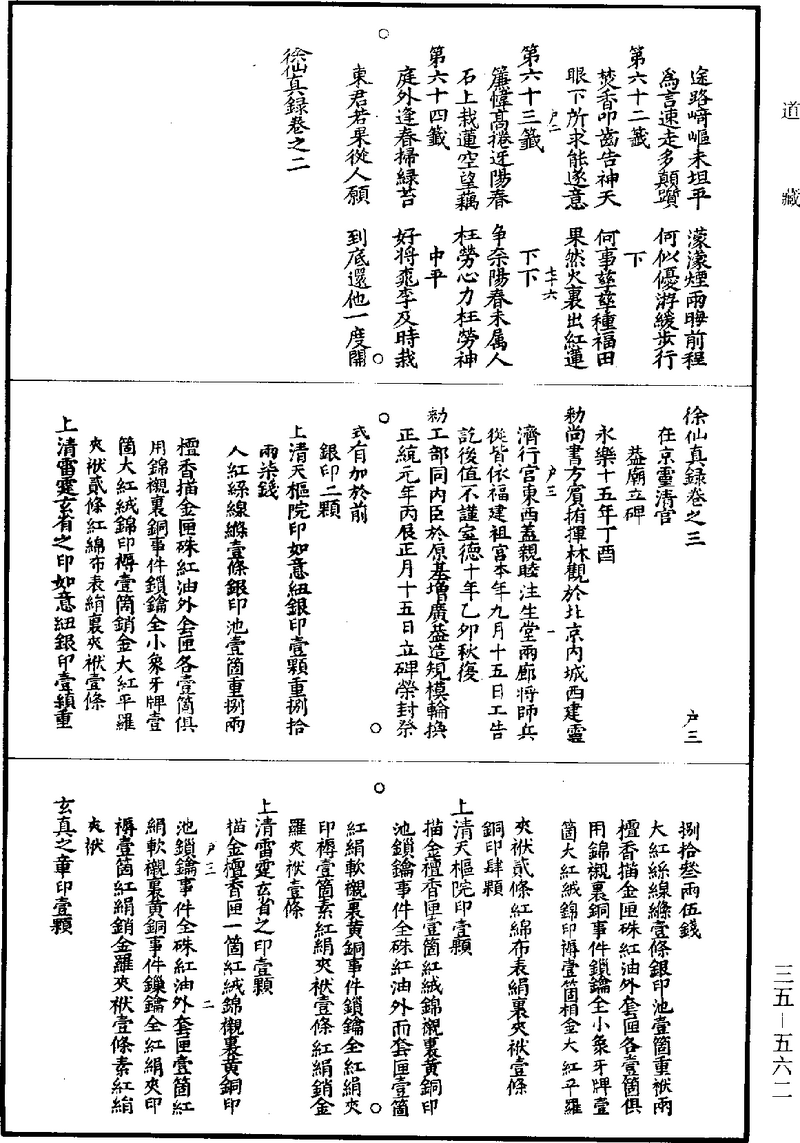 道藏
途路崎嶇未坦平　濛濛煙雨晦前程
爲言速走多顛躓　何似優游緩步行
第六十二籤　下
焚香叩齒告神天　何事孳孳種福田
眼下所求能遂意　果然火裏出紅蓮
戶二　七十六
第六十三籤　下下
簾幃高捲迓陽春　争奈陽春未属人
石上栽蓮空望藕　枉勞心力枉勞神
第六十四籤　中平
庭外逢春掃綠苔　好將桃李及時栽
東君若果從人願　到底還他一度開
徐仙真錄卷之二
徐仙真錄卷之三　戶三
在京靈濟宫
益廟立碑
永樂十五年丁酉
勑尚書方賔指揮林觀於北京内城西建靈
戶三　一
濟行宫東西蓋親睦注生堂兩廊將師兵
從皆依福建祖宫本年九月十五日工告
訖後值不謹宣德十年乙卯秋復
勑工部同内臣於原基增廣益造規模輪換
正統元年丙辰正月十五日立碑榮封祭
式有加於前
銀印二顆
上清天樞院印如意紐銀印壹顆重捌拾
兩柒錢
人紅絲線縧壹條銀印池壹箇重捌兩
檀香描金匣硃紅油外套匣各壹箇俱
用錦襯裏銅事件鎖鑰全小象牙牌壹
箇大紅絨錦印褥壹箇銷金大紅平羅
夾袱貳條紅綿布表絹裏夾袱壹條
上清雷霆玄省之印如意紐銀印壹顆重
捌拾叁兩伍錢
大紅絲線縧壹條銀印池壹箇重捌兩
檀香描金匣硃紅油外套匣各壹箇俱
用錦襯裏銅事件鎖鑰全小象牙牌壹
箇大紅絨錦印褥壹箇銷金大紅平羅
夾袱貳條紅綿布表絹裏夾袱壹條
銅印肆顆
上清天樞院印壹顆
描金檀香匣壹箇紅絨錦襯裏黄銅印
池鎖鑰事件全硃紅油外兩套匣壹箇
紅絹軟襯裏黄銅事件鎖鑰全紅絹夾
印褥壹箇素紅絹夾袱壹條紅絹銷金
羅夾袱壹條
上清雷霆玄省之印壹顆
描金檀香匣一箇紅絨錦襯裏黄銅印
戶三　二
池鎖鑰事件全硃紅油外套匣壹箇紅
絹軟襯裏黄銅事件鏁鑰全紅絹夾印
褥壹箇紅絹銷金羅夾袱壹條素紅絹
夾袱
玄真之章印壹顆
三五—五六二